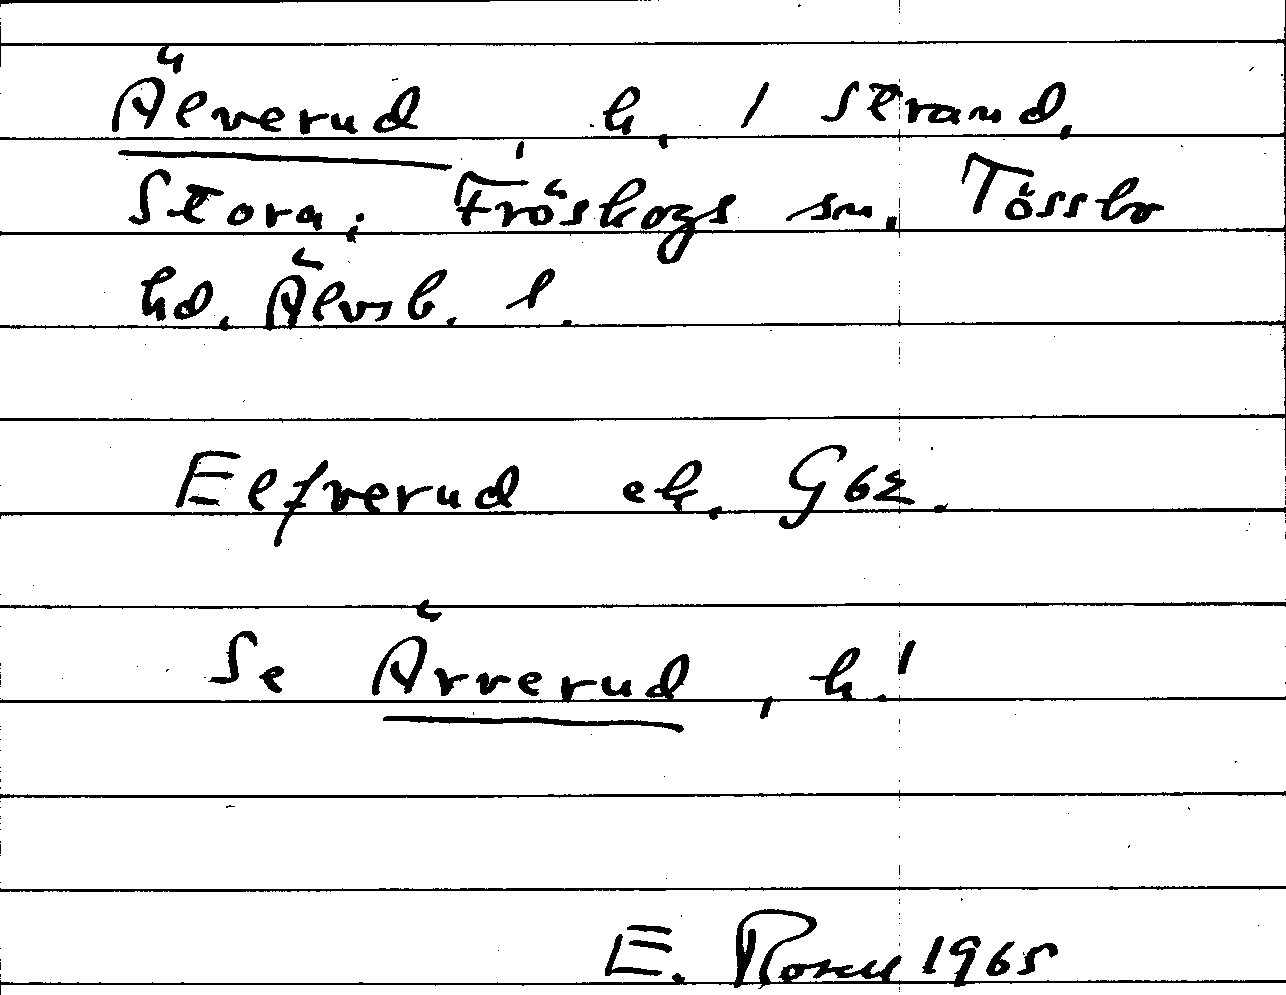 Älverud, h. / Strand,
Stora; Fröskogs sn. Tössbo
hd. Älvsb. l.
Elfverud ek. G62.
Se Ärrerud, h.!
E. Rosell 1965